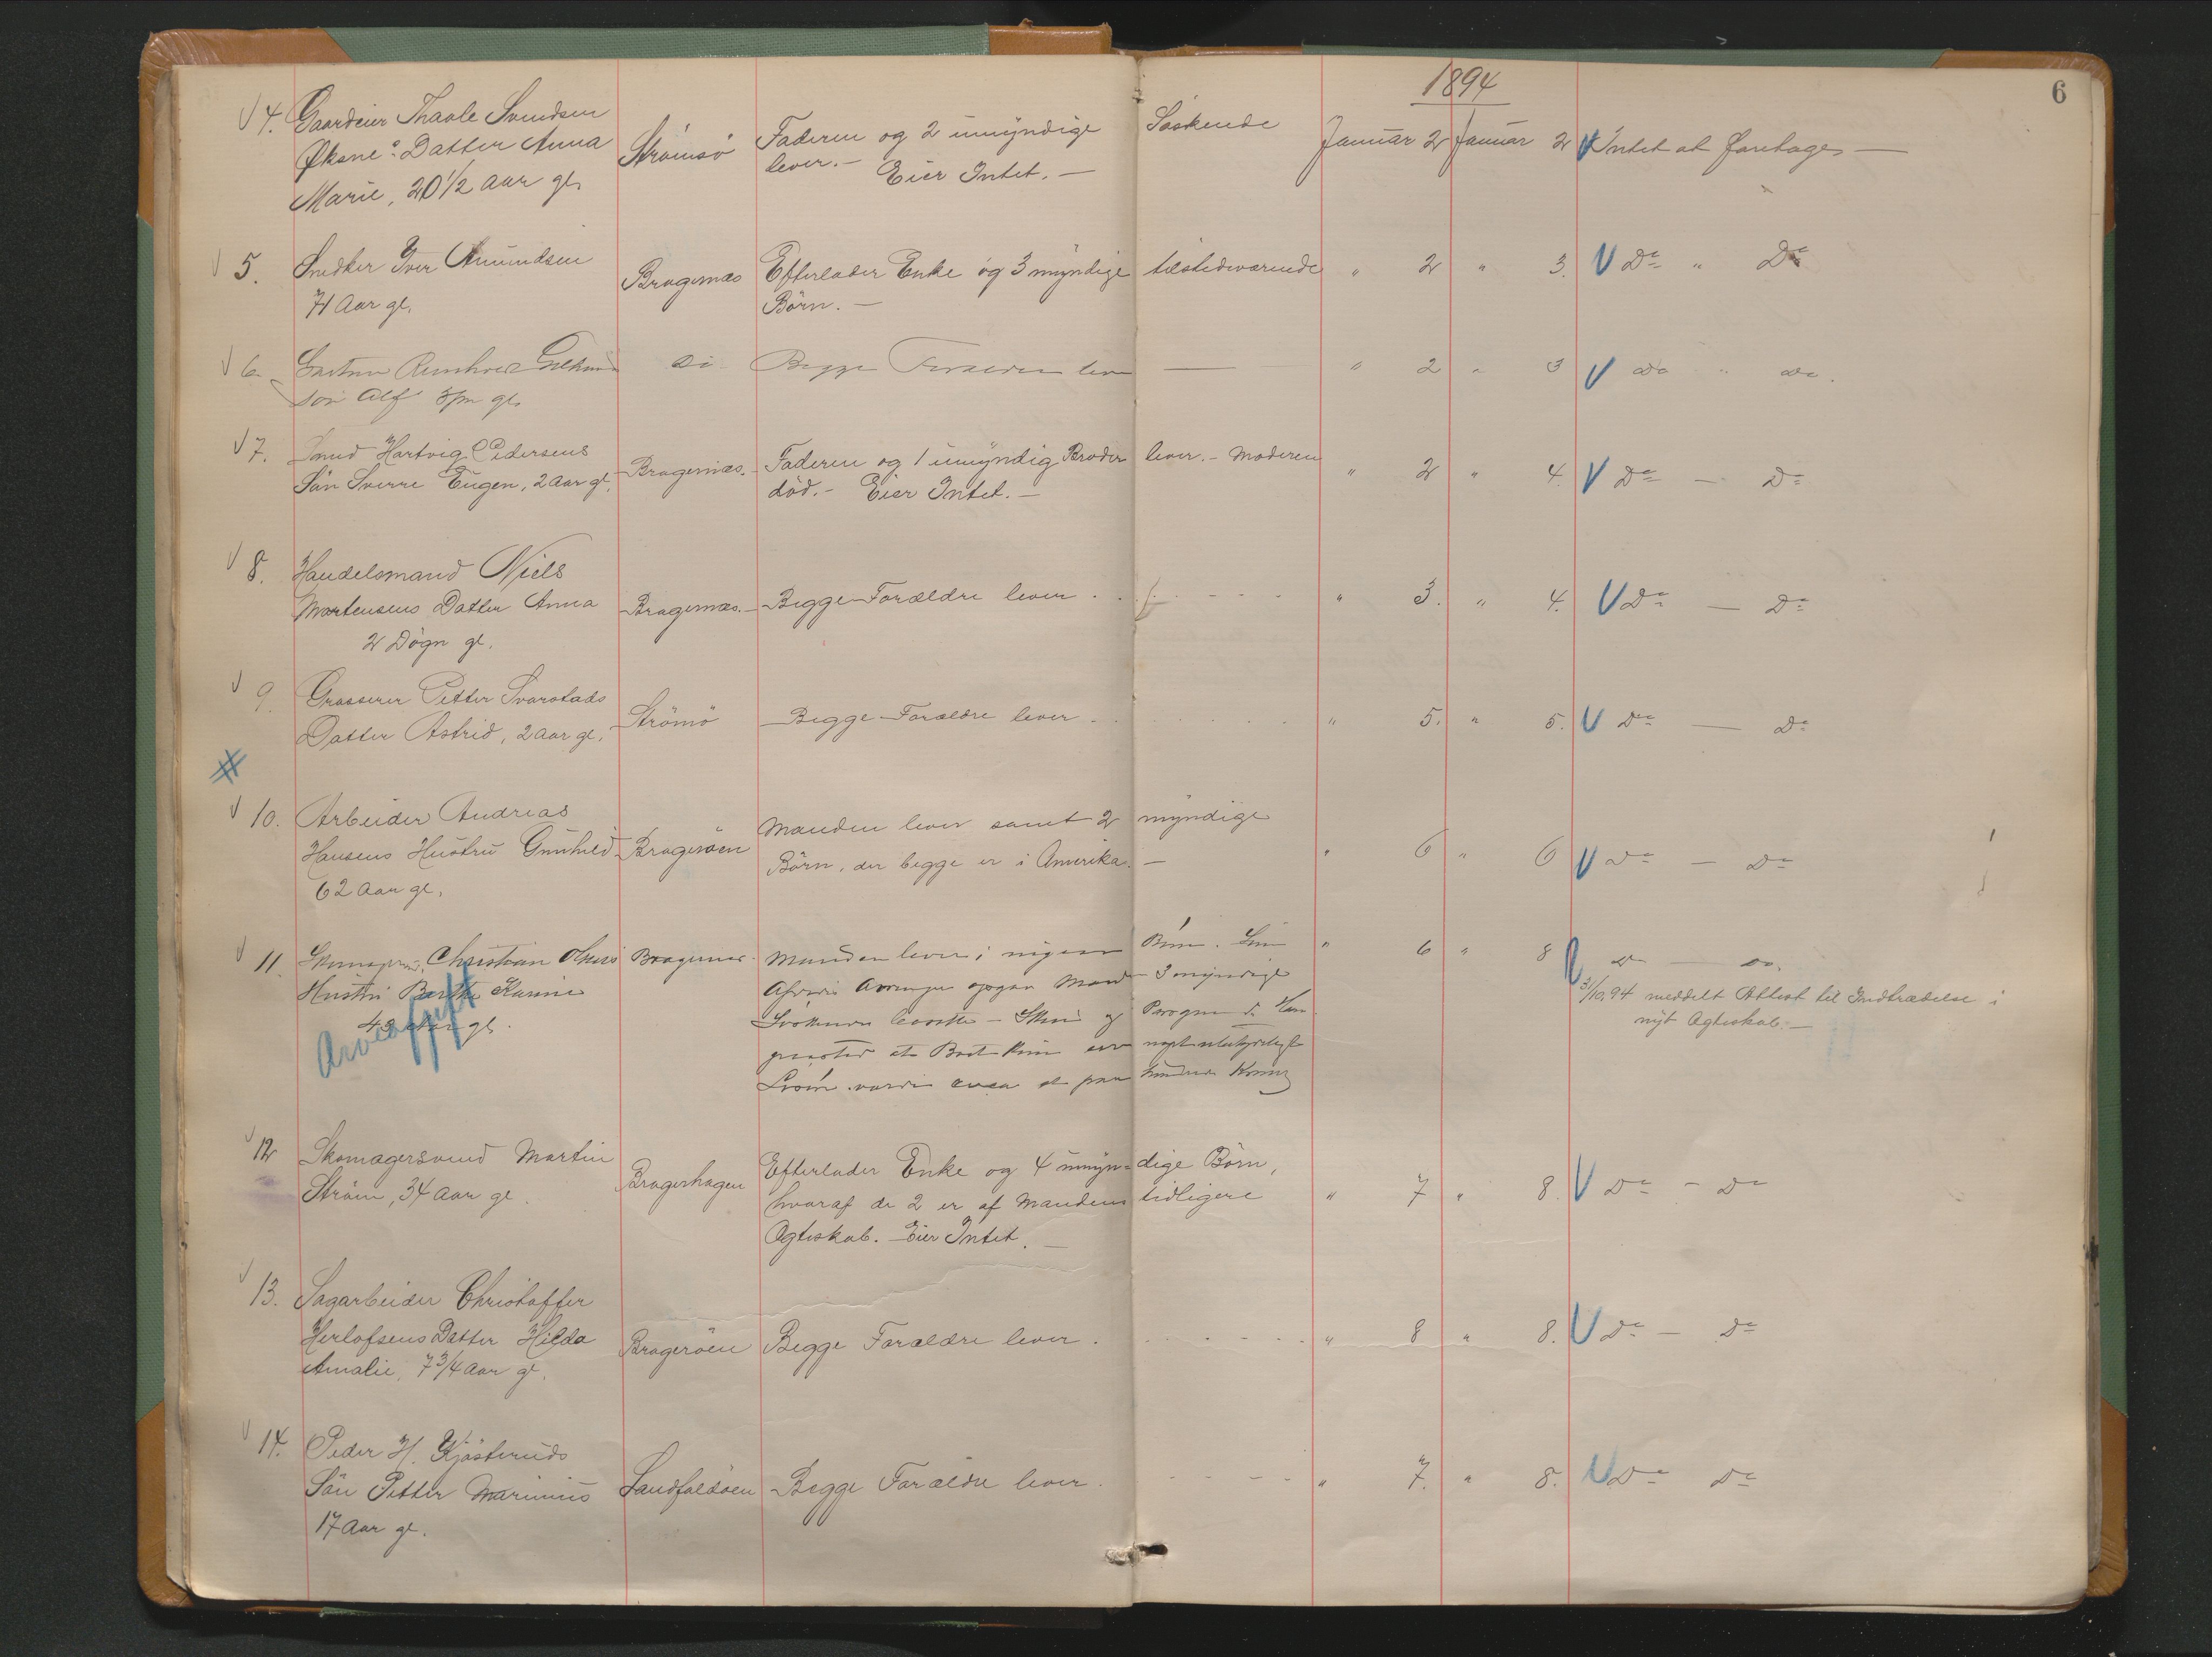 1894
6
4. Gaardeier Thaale Svendsen
Øksne's Datter Anna
Marie, 20 1/2 Aar gl.
Strømsö
Faderen og 2 umyndige Söskende
lever. - Eier Intet. -
Januar 2 Januar 2 Intet at foretage -
5. Snedker Iver Amundsen
71 Aar gl.
Bragernæs
Efterlader Enke og 3 myndige tilstedeværende
Börn. -
" 2 " 3. Do " Do
6. Gartner
Sön Alf 3/m gl.
Do Begge Forældre lever
" 2 " 3 Do " Do.
7. Smed Hartvig Pedersens
Sön Sverre Eugen, 2 Aar gl.
Bragernæs.
Faderen og 1 umyndig Broder lever. - Moderen
död. - Eier Intet. -
" 2 " 4. Do - Do
8. Handelsmand Niels
Mortensens Datter Anna
2 Dögn gl.
Bragernæs. - Begge Forældre lever.
" 3. " 4. Do - Do
9. Grosserer Petter Svarstads
Datter Astrid, 2 Aar gl.
Strömsö
Begge Forældre lever.
" 5. " 5. Do - Do
#
10. Arbeider Andreas
Hansens Hustru Gunhild
62 Aar gl.
Brageröen
Manden lever samt 2 myndige
Börn, der begge er i Amerika. -
" 6 " 6 Do - Do
11. Christian Olsens
Hustru Berthe Karine
43 Aar gl.
Arveafgift
Bragernæs
Manden lever; ingen Börn.
3 myndige
Kroner
" 6 " 8 Do - Do.
31/10.94 meddelt Attest til Indtrædelse i
nyt Ægteskab. -
12 Skomagersvend Martin
Ström, 34 Aar gl.
Bragerhagen
Efterlader Enke og 4 umyndige Börn,
hvoraf de 2 er af Mandens tidligere
Ægteskab. - Eier Intet. -
" 7 " 8. Do - Do
13. Sagarbeider Christoffer
Herlofsens Datter Hilda
Amalie, 7 3/4 Aar gl.
Brageröen
Begge Forældre lever.
" 8 " 8. Do - Do
14. Peder H. Kjösteruds
Sön Petter Marinius
17 Aar gl.
Landfaldöen
Begge Forældre lever.
" 7. " 8. Do Do